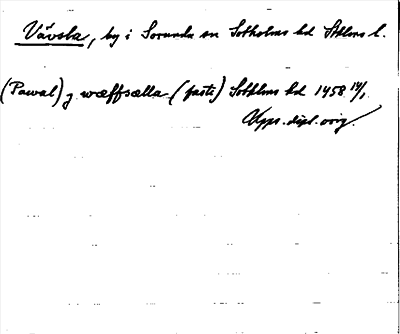 Vävsta, by i Sorunda sn Sotholms hd Sthlms l.
(Pawal) j wæffsætta (fasti) Sothlms hd 1458 14/1
Upps. dipl. orig.